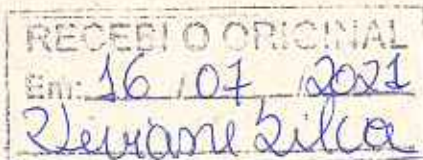 RECEBI O ORIGINAL
Em: 16 / 07 / 2021
Silva